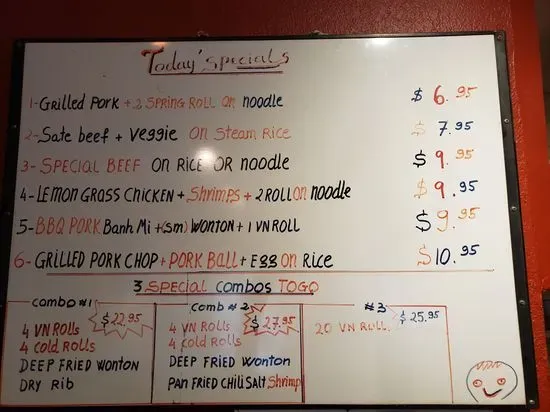 Today'specials
1-Grilled Pork + 2 SPRING ROLL on noodle $ 6.95
2-Sate beef + Veggie On Steam Rice $ 7.95
3- SPECIAL BEEF ON RICE OR noodle $ 9.95
4-LEMON GRASS CHICKEN + Shrimps + 2 ROLL on noodle $ 9.95
5-BBQ PORK Banh Mi +(sm) WONTON + 1 VN ROLL $ 9.95
6- GRILLED PORK CHOP + PORK BALL + Egg on Rice $10.95
3 SPECIAL COMBOS TOGO
Combo #1
$22.95
4 VN Rolls
4 Cold Rolls
DEEP FRIED WONTON
DRY Rib
Comb #2
$27.95
4 VN Rolls
4 Cold ROLLS
DEEP FRIED Wonton
PAN FRIED CHILI SALT Shrimp
#3
$25.95
20 VN ROLL.